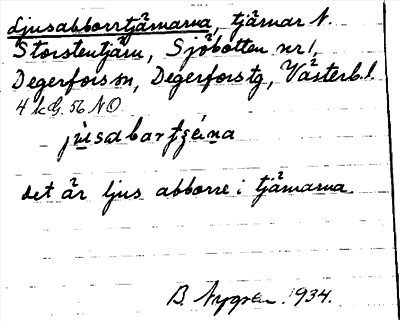 Ljusabborrtjärnarna, tjärnar N.
Storstentjärn, Sjöbotten nr 1,
Degerfors sn, Degerfors tg, Västerb. l.
4 kG. 56 NO
jùsabartjéṇa
det är ljus abborre i tjärnarna.
B. Nygren. 1934.